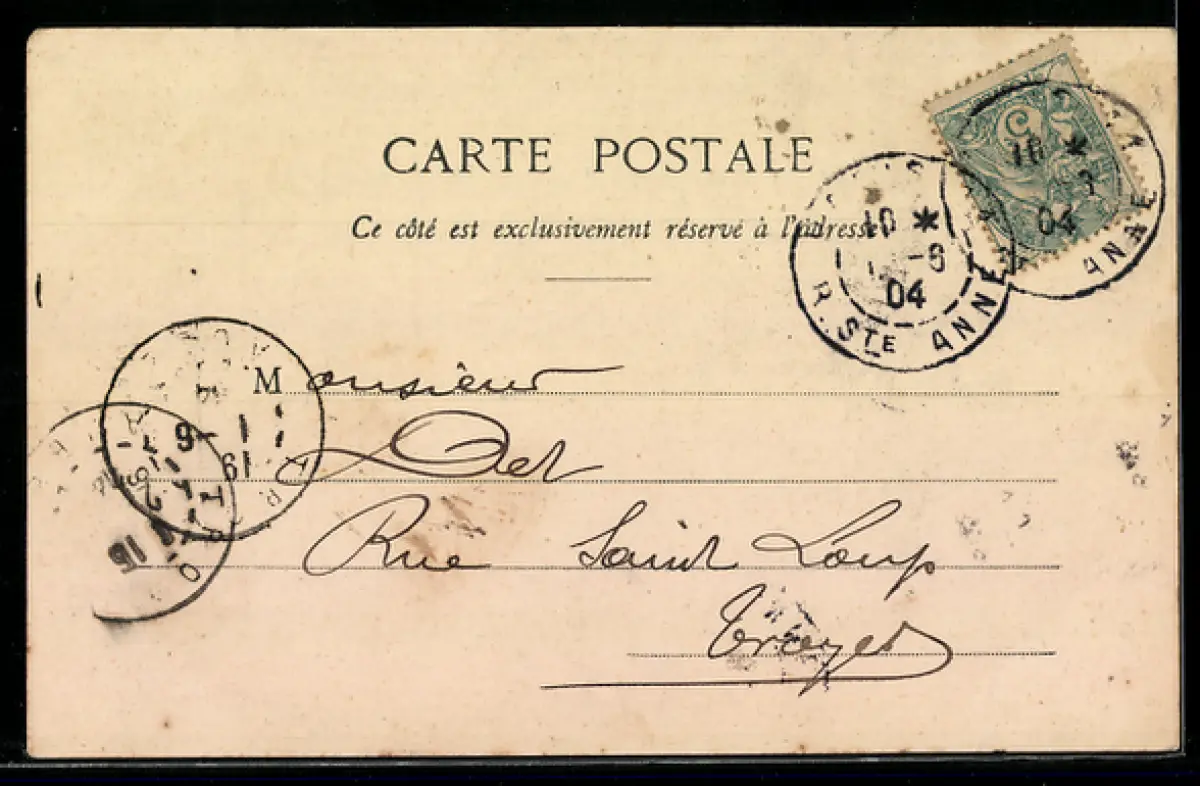 CARTE POSTALE
Ce côté est exclusivement réservé à l'adresse
5
10 *
-6
04
R. STE ANNE
10 *
04
ANNE
Monsieur
Det
Rue Saint Loup
Troyes
1-6
15